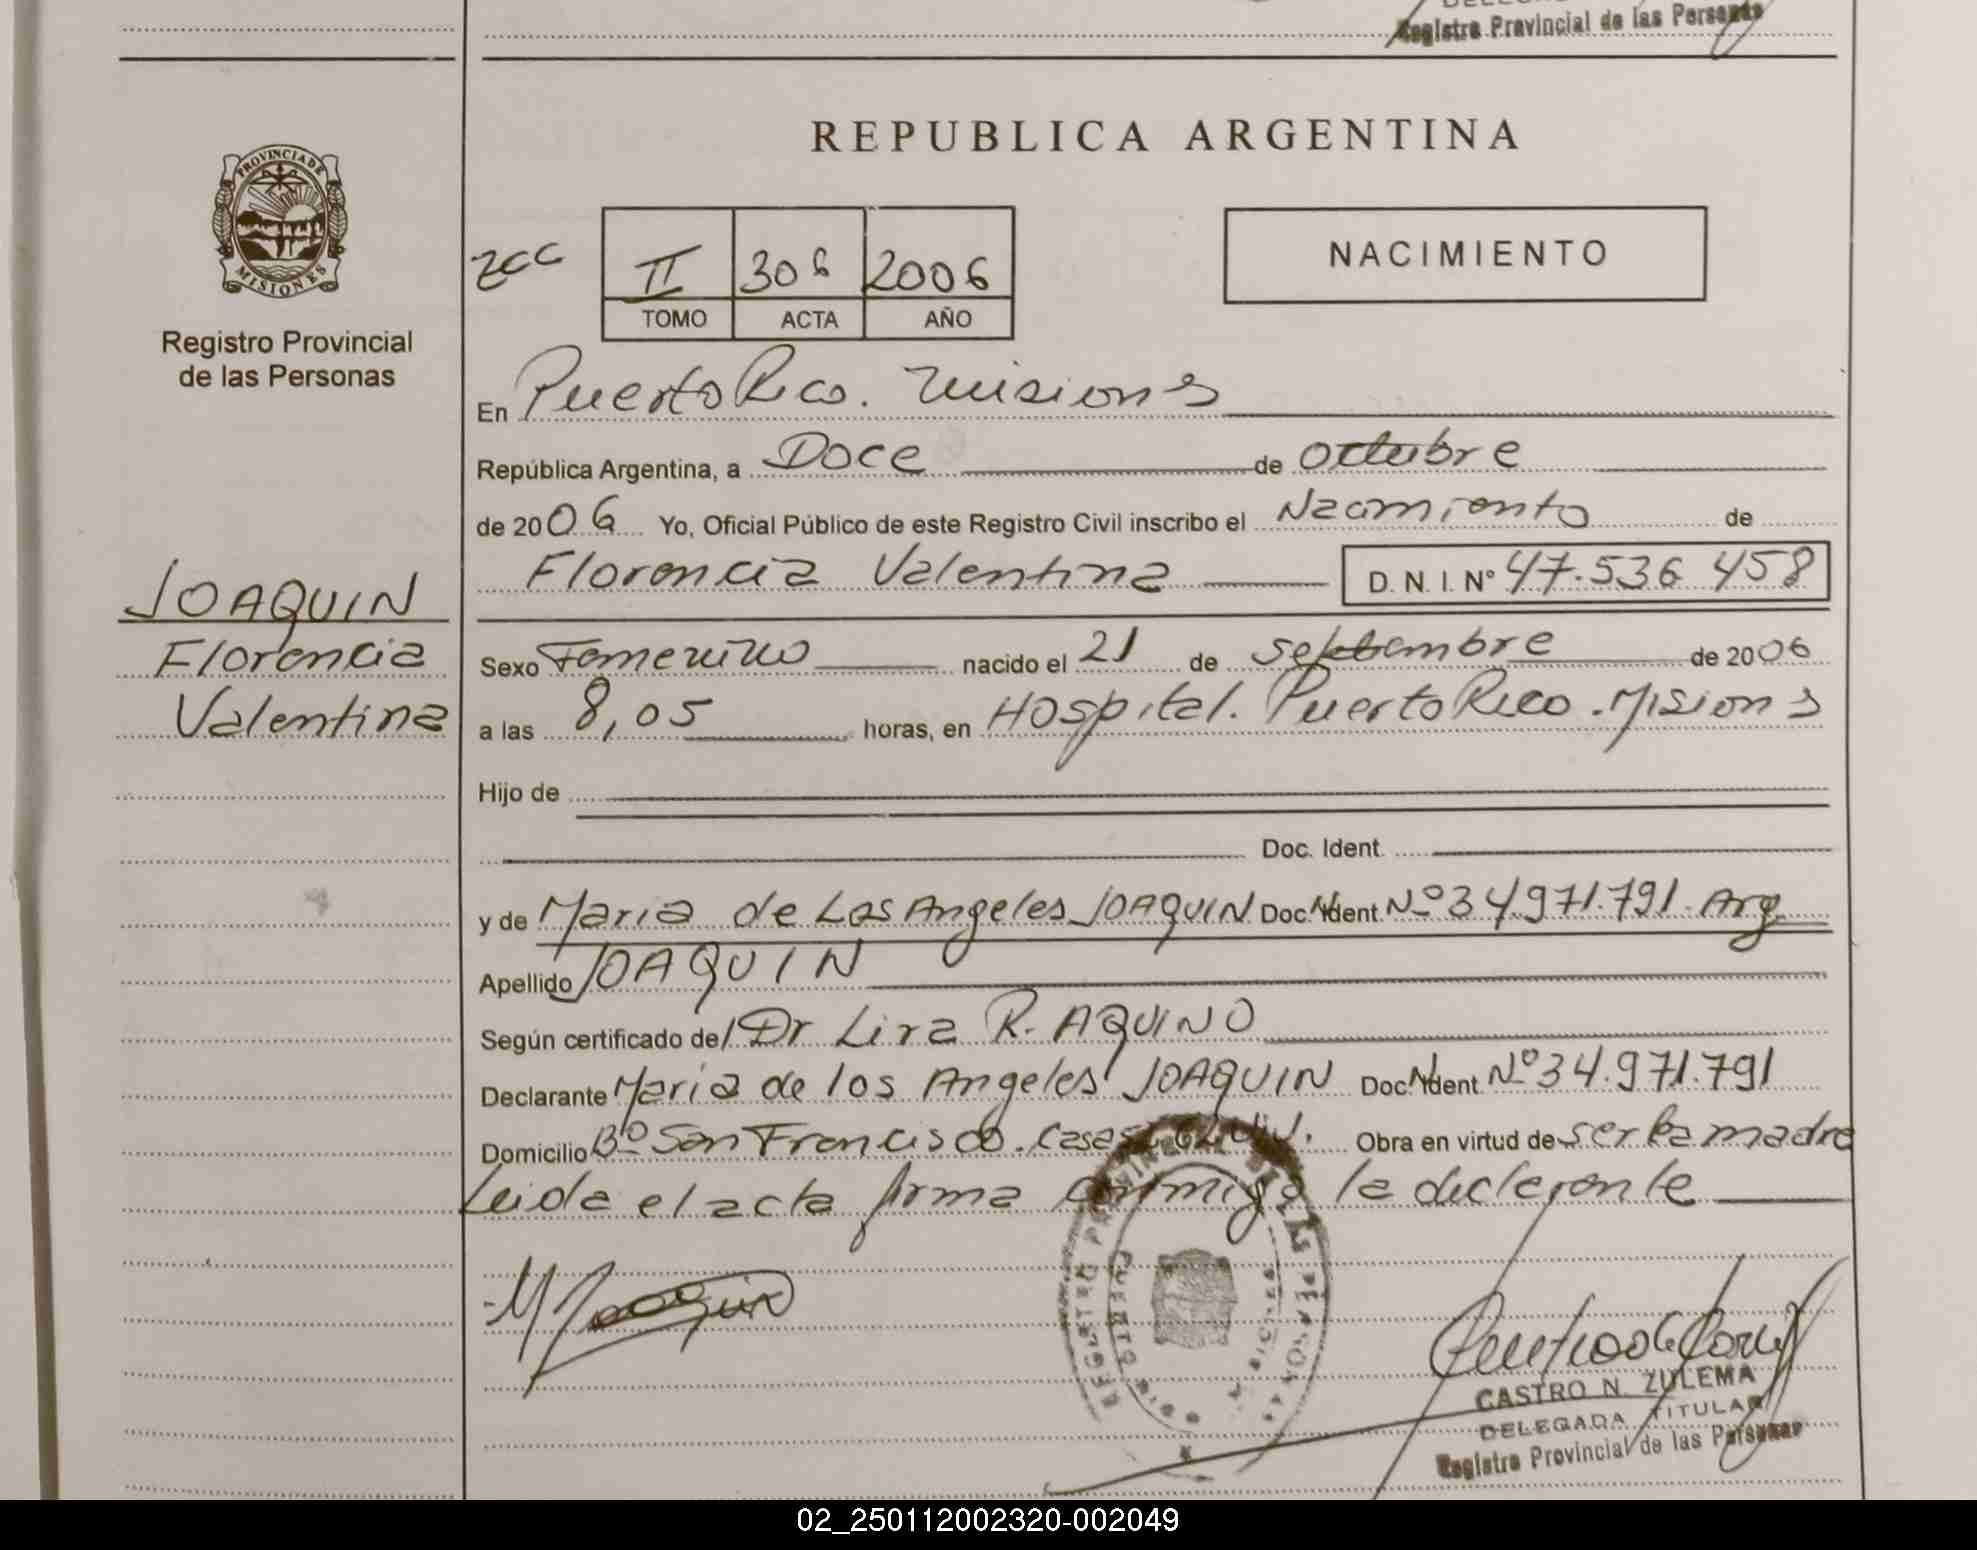 Registro Provincial de las Personas
REPUBLICA ARGENTINA
PROVINCIA DE
MISIONES
NACIMIENTO
II 306 2006
TOMO ACTA AÑO
Registro Provincial
de las Personas
En Puerto Rico. Misiones
República Argentina, a Doce de octubre
de 2006 Yo, Oficial Público de este Registro Civil inscribo el Nacimiento de
Florencia Valentina D. N. I. Nº 47.536 458
JOAQUIN
Florencia
Valentina
Sexo Femenino nacido el 21 de septiembre de 2006
a las 8,05 horas, en Hospital. Puerto Rico. Misiones
Hijo de
Doc. Ident.
y de Maria de Los Angeles JOAQUIN Doc. Ident. Nº 34.971.791. Arg
Apellido JOAQUIN
Según certificado del Dr Lira R. AQUINO
Declarante Maria de los Angeles JOAQUIN Doc. Ident. Nº 34.971.791
Domicilio Bº San Francisco. Obra en virtud de ser la madre
Leida el acta firma conmigo la declarante
M Joaquin
REGISTRO PROVINCIAL DE LAS PERSONAS
PUERTO RICO MISIONES
CASTRO N. ZULEMA
DELEGADA TITULAR
Registro Provincial de las Personas
02_250112002320-002049